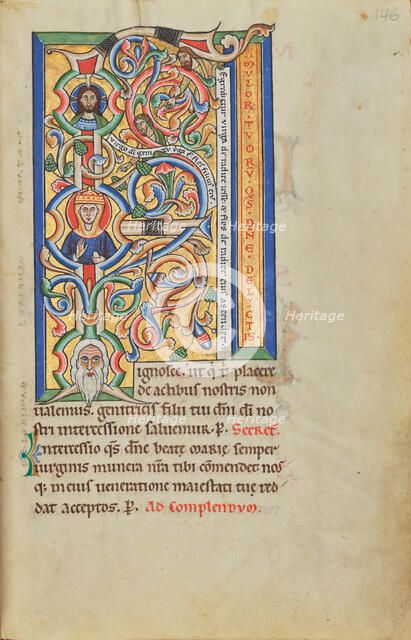 146
MVLOR · TVORV · QS · DNE · DELICTIS
Egredietur uirga de radice iesse & flos de radice eius ascendet
Virgo di genitrix uirga e flos filius ei
ignosce. ut q' t placere
de actibus nostris non
ualemus. genitricis filii tui dni di no
stri intercessione saluemur. P. Secret.
Intercessio qs dne beate marie semper
uirginis munera nra tibi comendet nos
q; in eius ueneratione maiestati tue red
dat acceptos. P. Ad Complendum.
Heritage
Images